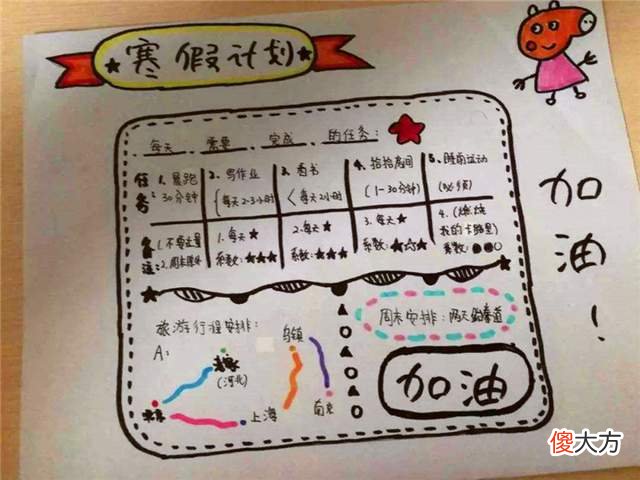 寒假计划
每天 需要 完成 的任务:
任务: 1. 晨跑 30分钟
2. 写作业 (每天2-3小时)
3. 看书 (每天2小时)
4. 拾拾房间 (1-30分钟)
5. 睡前运动
备注: 1. 不要过量 2. 周末
1. 每天★ 系数:★★★
2. 每天★ 系数:★★★
3. 每天★ 系数:★☆☆
4. (燃烧我的卡路里) 系数:●●○
旅游行程安排:
A:
(河北)
北京
上海
乌镇
南京
周末安排:
加油
加油!
傻大方